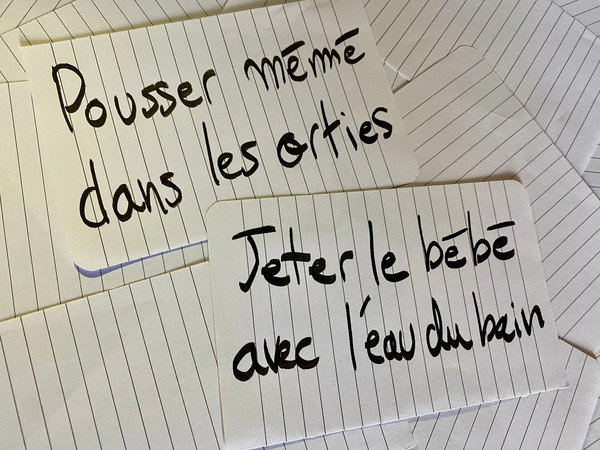 Pousser mémé
dans les orties
Jeter le bébé
avec l'eau du bain